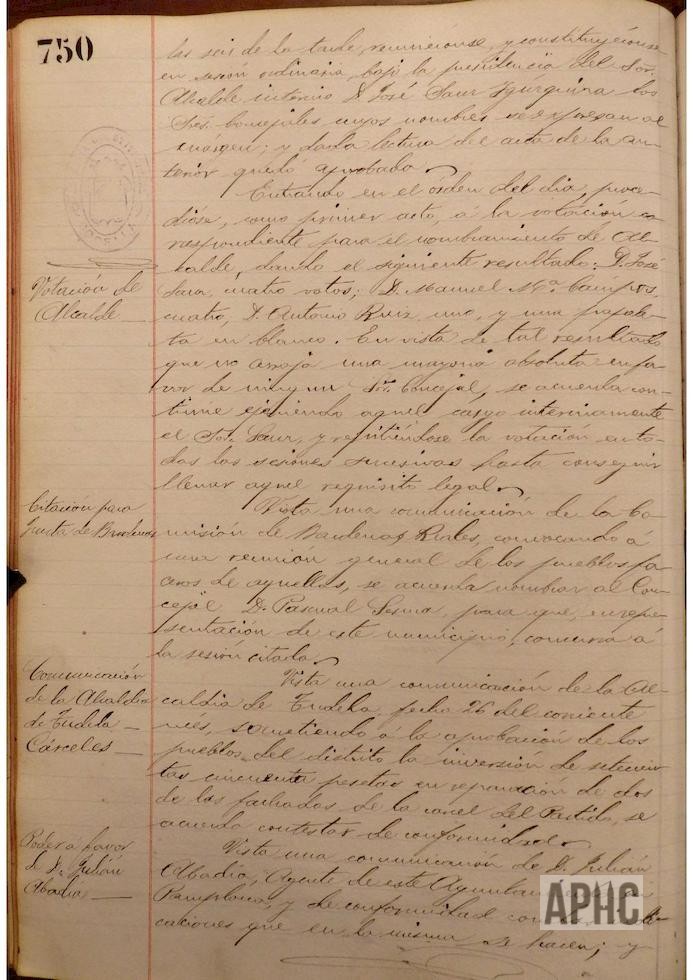 750
las seis de la tarde, reuniéronse, y constituyéronse
en sesión ordinaria, bajo la presidencia del Sor.
Alcalde interino D. José Saur Igúrquiza los
Sres. Concejales cuyos nombres se expresan al
márgen; y dada lectura del acta de la an-
terior quedó aprobada.
Entrando en el órden del día, proce-
dióse, como primer acto, á la votación co-
rrespondiente para el nombramiento de Al-
calde, dando el siguiente resultado: D. José
Saur, cuatro votos; D. Manuel Mª. Campos,
cuatro, D. Antonio Ruiz, uno, y una papele-
ta en blanco. En vista de tal resultado
que no arroja una mayoría absoluta en fa-
vor de ningun Sor. Concejal, se acuerda con-
tinue ejerciendo aquel cargo interinamente
el Sor. Saur, y repitiéndose la votación en to-
das las sesiones sucesivas hasta conseguir
llenar aquel requisito legal.
Votación de
Alcalde
Vista una comunicación de la Co-
misión de Bardenas Reales, convocando á
una reunión general de los pueblos fa-
ceros de aquellas, se acuerda nombrar al Con-
cejal D. Pascual Sesma, para que, en repre-
sentación de este municipio, concurra á
la sesión citada.
Citación para
Junta de Bardenas
Vista una comunicación de la Al-
caldía de Tudela, fecha 26 del corriente
mes, sometiendo á la aprobación de los
pueblos del distrito la inversión de setecien-
tas cincuenta pesetas en reparación de dos
de las fachadas de la carcel del Partido, se
acuerda contestar de conformidad.
Comunicación
de la Alcaldía
de Tudela
Cárceles
Vista una comunicación de D. Julián
Abadía, Agente de este Ayuntam
Pamplona, y de conformidad con
caciones que en la misma se hacen; y
Poder á favor
de D. Julián
Abadía
APHC